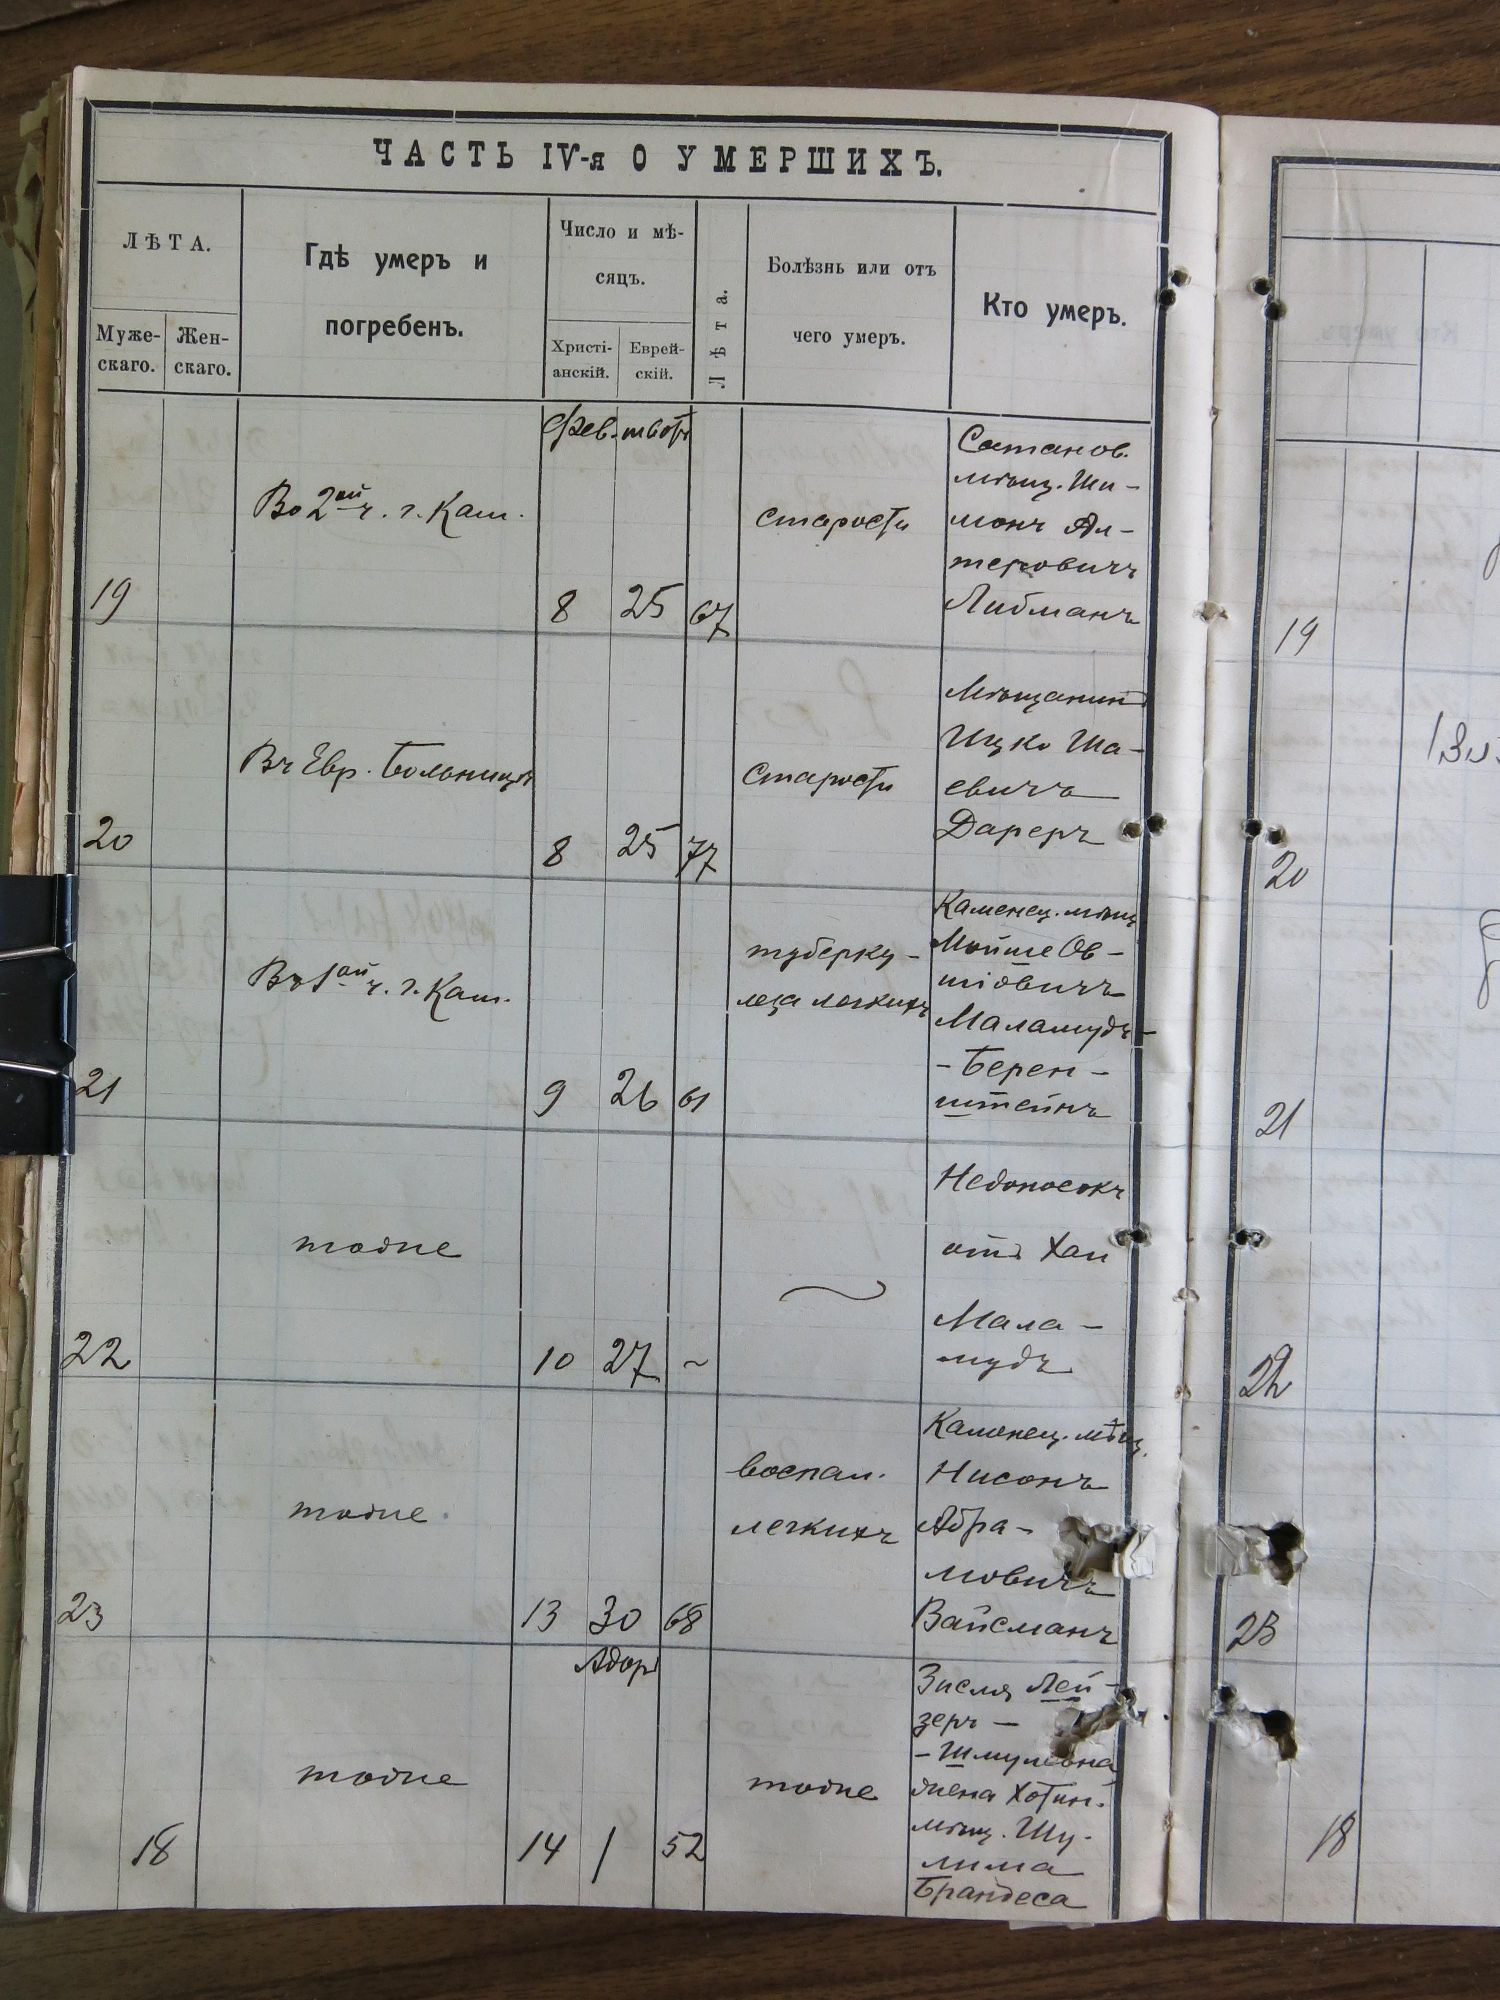 ЧАСТЬ IV-я О УМЕРШИХЪ.
ЛѢТА.
Муже-
скаго.
Жен-
скаго.
Гдѣ умеръ и
погребенъ.
Число и мѣ-
сяцъ.
Христі-
анскій.
Еврей-
скій.
Лѣта.
Болѣзнь или отъ
чего умеръ.
Кто умеръ.
Фев.
19
Во 2ой ч. г. Кам.
8
25
67
старости
Сатанов.
мѣщ. Ши-
монъ Ал-
теровичъ
Либманъ
20
Въ Евр. больницѣ
8
25
77
старости
Мѣщанинъ
Ицко Ша-
евичъ
Дареръ
21
Въ 1ой ч. г. Кам.
9
26
61
туберку-
леза легкихъ
Каменец. мѣщ
Мойше Ов-
шіовичъ
Маламудъ-
-Берен-
штейнъ
22
тоже
10
27
~
Недоносокъ
отъ Хаи
Мала-
мудъ
23
тоже
13
30
68
воспал.
легкихъ
Каменец. мѣщ.
Нисонъ
Абра-
мовичъ
Вайсманъ
Адоръ
18
тоже
14
1
52
тоже
Зисля Лей-
зеръ-
-Шмулевна
жена Хотин.
мѣщ. Шу-
лима
Брандеса
19
20
21
22
23
18